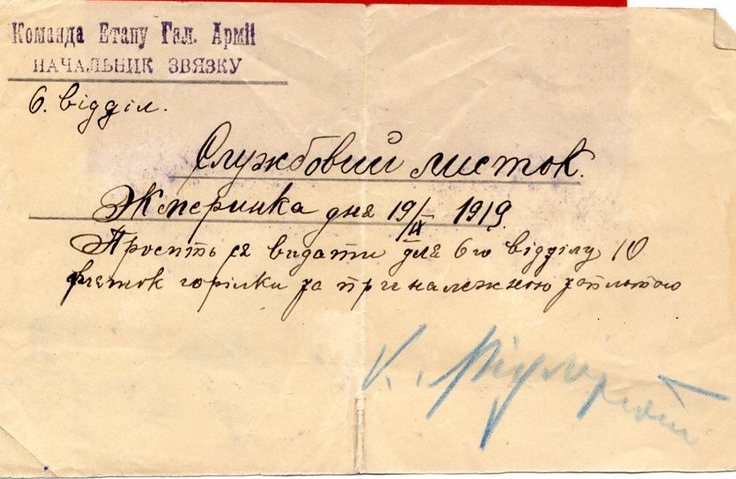 Команда Етапу Гал. Армії
НАЧАЛЬНИК ЗВЯЗКУ
6. відділ.
Службовий листок.
Жмеринка дня 19/IX 1919.
Просить ся видати для 6го відділу 10
фляшок горілки за приналежною заплатою